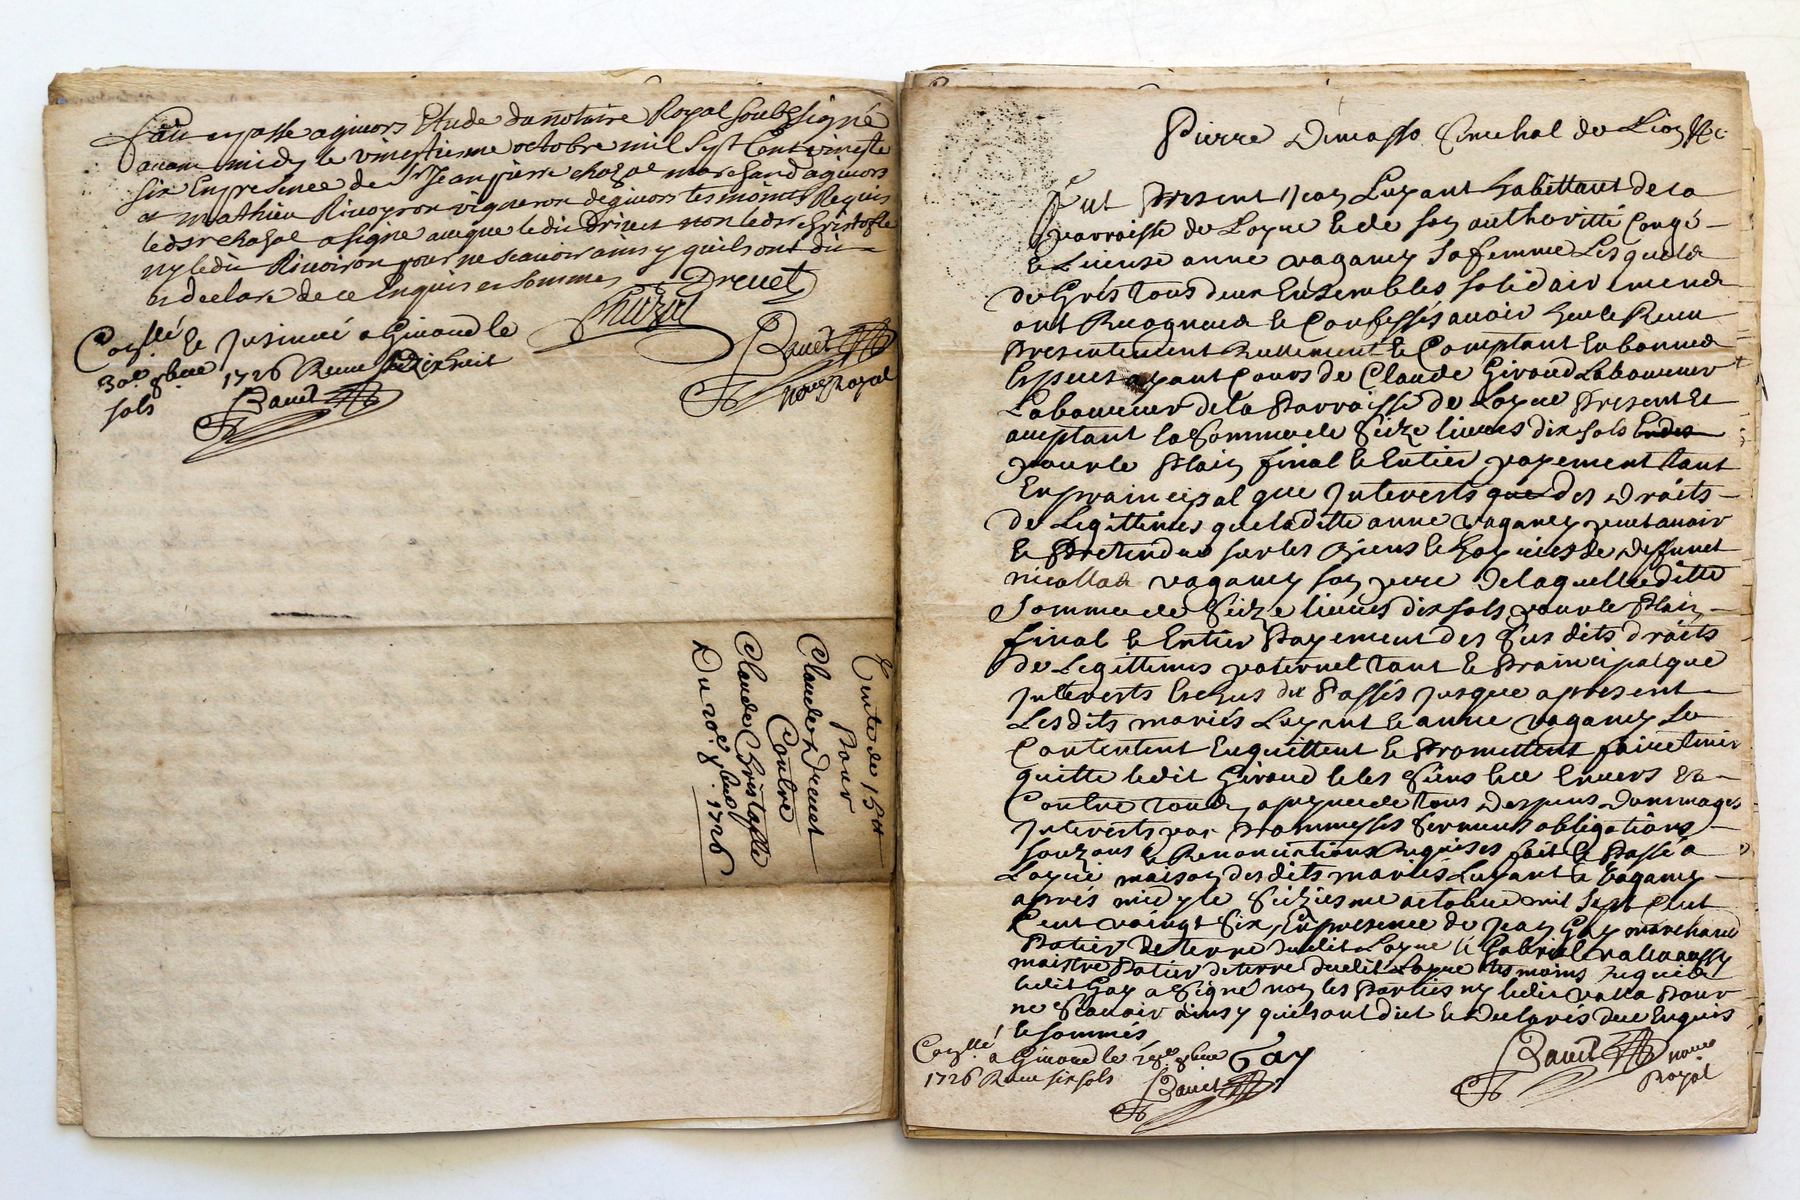 fait et passe a givors Etude du notaire Royal soubsigné
avant midy le vingtiesme octobre mil sept Cent vingte
six En presence de Sr Jean pierre chazal marchand a givors
et mathieu Rivoyron vigneron de givors tesmoins Requis
ledsr chazal a signé avec que ledit Drevet non ledsr christofle
ny ledit Rivoiron pour ne scavoir ainsy quils ont dit
et declare de ce Enquis et sommes
Drevet
Chazal
Bavet
nore Royal
Conllé et Insinué a Givord le
30e 8bre 1726 Receu dix huit
sols
Bavet
Vente de 15tt
Pour
Claude Drevet
Contre
Claude Christofle
Du 20e 8bre 1726
Pierre Dimasso senechal de Lion &c
Fut Present Jean Luyant habittant de la
parroisse de Loyre le de son authoritté Congé
et License anne vaganey sa femme Lesquels
de Grés tous deux Ensembles solidairement
ont Recogneus et Confessés avoir heu et Receu
Presentement Reellement et Comptant En bonnes
Especes ayant Cours de Claude Giroud Laboureur
Laboureur de la Parroisse de Loyre Present Et
acceptant la somme de seize livres dix sols
pour le Plain final et Entier payement tant
En praincipal que Interests que des Droits
de Legittimes que laditte anne vaganey peut avoir
et Pretendre sur les biens et hoyries de deffunct
nicollas vaganey son pere de laquelle ditte
somme de seize livres dix sols pour le Plain
final et Entier Payement des sus dits droits
de Legittimes paternel tant et Praincipal que
Interests Escheus du Passés jusque a present
Lesdits mariés Luyant et anne vaganey se
Contentent En quittent et Promettent faire tenir
quitte ledit Giroud et les siens Envers et
Contre tous a peyne de tous Despens Dommages
Interests par Prommesses serments obligations
et Renonciations Requises fait et Passé a
Loyre maison desdits mariés Luyant et vaganey
aprés midy le seiziesme octobre mil sept Cent
Cent vaingt six En presence de Jean Gay marchand
Patier de terre dudit Loyre et Gabriel
maistre Patier de terre dudit Loyre tesmoins Requis
ledit Gay a signé non les Parties ny ledit valla Pour
ne scavoir ainsy quils ont dict et Declarés de ce Enquis
et sommés
Gay
Bavet nore
Royal
Conllé a Givord le 8bre
1726 Receu six sols
Bavet